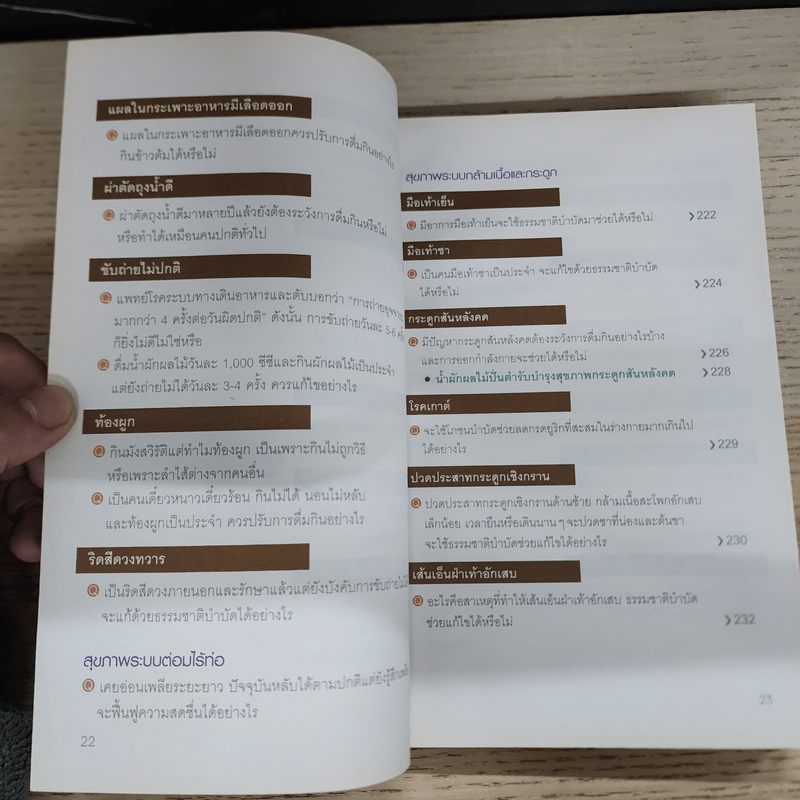 แผลในกระเพาะอาหารมีเลือดออก
แผลในกระเพาะอาหารมีเลือดออกควรปรับการดื่มกินอย่างไร
กินข้าวต้มได้หรือไม่
ผ่าตัดถุงน้ำดี
ผ่าตัดถุงน้ำดีมาหลายปีแล้วยังต้องระวังการดื่มกินหรือไม่
หรือทำได้เหมือนคนปกติทั่วไป
ขับถ่ายไม่ปกติ
แพทย์โรคระบบทางเดินอาหารและตับบอกว่า "การถ่ายอุจจาระ
มากกว่า 4 ครั้งต่อวันผิดปกติ" ดังนั้น การขับถ่ายวันละ 5-6
ก็ยิ่งไม่ดีไม่ใช่หรือ
ดื่มน้ำผักผลไม้วันละ 1,000 ซีซีและกินผักผลไม้เป็นประจำ
แต่ยังถ่ายไม่ได้วันละ 3-4 ครั้ง ควรแก้ไขอย่างไร
ท้องผูก
กินมังสวิรัติแต่ทำไมท้องผูก เป็นเพราะกินไม่ถูกวิธี
หรือเพราะลำไส้ต่างจากคนอื่น
เป็นคนเดี๋ยวหนาวเดี๋ยวร้อน กินไม่ได้ นอนไม่หลับ
และท้องผูกเป็นประจำ ควรปรับการดื่มกินอย่างไร
ริดสีดวงทวาร
เป็นริดสีดวงภายนอกและรักษาแล้วแต่ยังบังคับการขับถ่ายไม่
จะแก้ด้วยธรรมชาติบำบัดได้อย่างไร
สุขภาพระบบต่อมไร้ท่อ
เคยอ่อนเพลียระยะยาว ปัจจุบันหลับได้ตามปกติแต่ยังรู้สึกเพลีย
จะฟื้นฟูความสดชื่นได้อย่างไร
22
สุขภาพระบบกล้ามเนื้อและกระดูก
มือเท้าเย็น
มีอาการมือเท้าเย็นจะใช้ธรรมชาติบำบัดมาช่วยได้หรือไม่ 222
มือเท้าชา
เป็นคนมือเท้าชาเป็นประจำ จะแก้ไขด้วยธรรมชาติบำบัด
ได้หรือไม่ 224
กระดูกสันหลังคด
มีปัญหากระดูกสันหลังคดต้องระวังการดื่มกินอย่างไรบ้าง
และการออกกำลังกายจะช่วยได้หรือไม่ 226
• น้ำผักผลไม้ปั่นตำรับบำรุงสุขภาพกระดูกสันหลังคด 228
โรคเกาต์
จะใช้โภชนบำบัดช่วยลดกรดยูริกที่สะสมในร่างกายมากเกินไป
ได้อย่างไร 229
ปวดประสาทกระดูกเชิงกราน
ปวดประสาทกระดูกเชิงกรานด้านซ้าย กล้ามเนื้อสะโพกอักเสบ
เล็กน้อย เวลายืนหรือเดินนาน ๆ จะปวดชาที่น่องและต้นขา
จะใช้ธรรมชาติบำบัดช่วยแก้ไขได้อย่างไร 230
เส้นเอ็นฝ่าเท้าอักเสบ
อะไรคือสาเหตุที่ทำให้เส้นเอ็นฝ่าเท้าอักเสบ ธรรมชาติบำบัด
ช่วยแก้ไขได้หรือไม่ 232
23